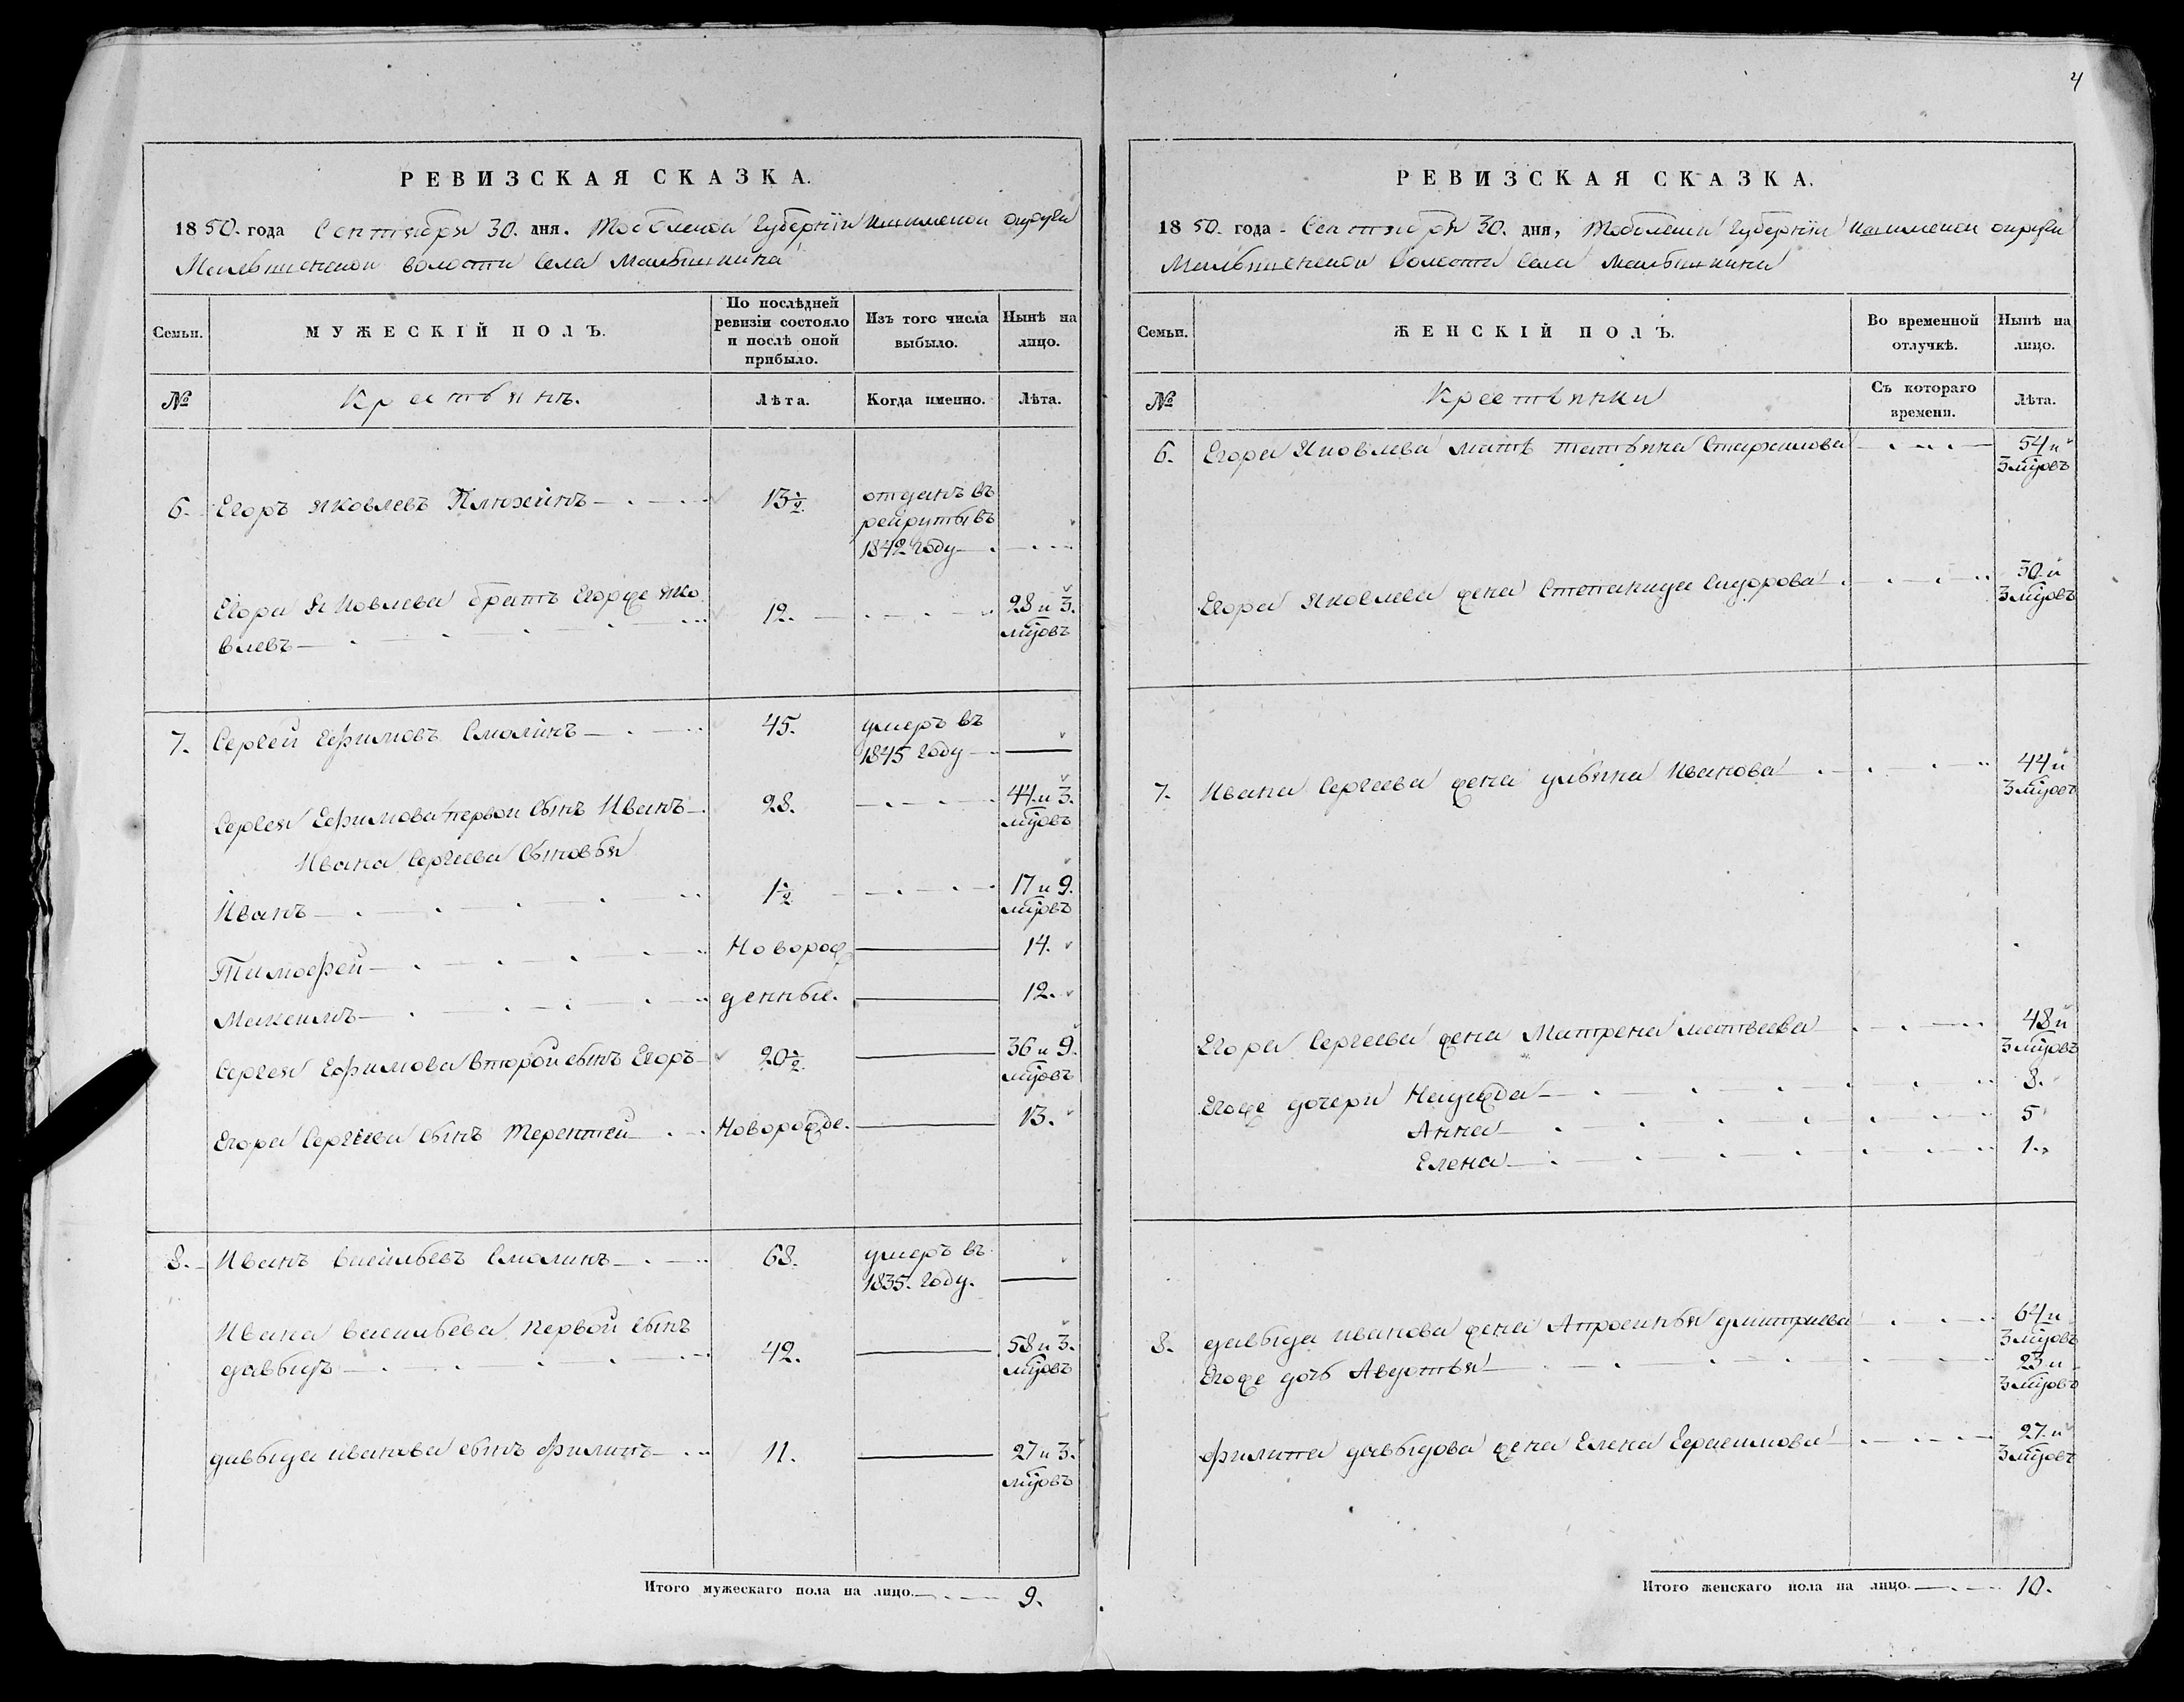 4
РЕВИЗСКАЯ СКАЗКА.
1850. года Сентября 30. дня. Тобольской Губерніи Ишимской округи
Малышенской волости села Малышкина
Семьи.
МУЖЕСКІЙ ПОЛЪ.
По послѣдней ревизіи состояло и послѣ оной прибыло.
Изъ того числа выбыло.
Нынѣ на лицо.
№
Крестьянъ.
Лѣта.
Когда именно.
Лѣта.
6. Егоръ Яковлевъ Плюхинъ 13½ отданъ въ
рекруты въ
1842 году
Егора Яковлева братъ Егорже Яко 12. 28 и 3.
влевъ мцовъ
7. Сергей Ефимовъ Смолинъ 45. умеръ въ
1845 году
Сергея Ефимова первой сынъ Иванъ 28. 44. и 3.
мцовъ
Ивана Сергеева сыновья
Иванъ 1½ 17 и 9.
мцовъ
Тимофей Новорож 14.
Максимъ денные. 12.
Сергея Ефимова второй сынъ Егоръ 20½ 36 и 9.
мцовъ
Егора Сергеева сынъ Терентей Новорожде. 13.
8. Иванъ Васильевъ Смолинъ 68. умеръ въ
1835. году.
Ивана Васильева первой сынъ
Давыдъ 42. 58 и 3.
мцовъ
Давыда Иванова сынъ Филипъ 11. 27 и 3.
мцовъ
Итого мужескаго пола на лицо. 9.
РЕВИЗСКАЯ СКАЗКА.
1850. года. Сентября 30. дня, Тобольской Губерніи Ишимской округи
Малышенской волости села Малышкина
Семьи.
ЖЕНСКІЙ ПОЛЪ.
Во временной отлучкѣ.
Нынѣ на лицо.
№
Крестьянки
Съ котораго времени.
Лѣта.
6. Егора Яковлева мать Татьяна 54 и
3 мцовъ
Егора Яковлева жена Степанида Сидорова 30 и
3 мцовъ
7. Ивана Сергеева жена Ульяна Иванова 44 и
3 мцовъ
Егора Сергеева жена Матрена Матвеева 48 и
3 мцовъ
Егоже дочери Надежда 8.
Анна 5
Елена 1.
8. Давыда Иванова жена Апросинья Дмитриева 64 и
3 мцовъ
Егоже дочь Авдотья 23 и
3 мцовъ
Филипа Давыдова жена Елена Герасимова 27. и
3 мцовъ
Итого женскаго пола на лицо. 10.